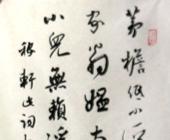 茅檐低小
家翁媪大
小兒無賴溪
稼軒